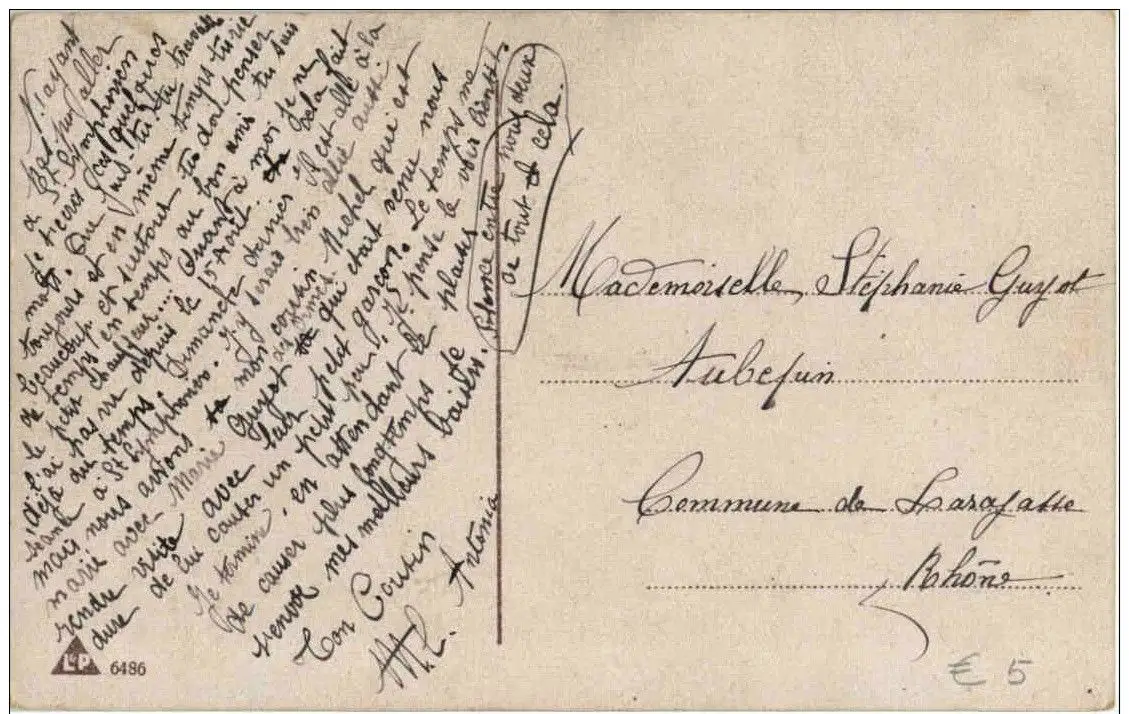 N'ayant
pas pu aller
à St Symphorien
je t'écris ces quelques
mots. Que fais-tu tu travaille
toujours et en même temps tu rie
beaucoup et surtout tu dois penser
de temps en temps au bon amis tu sais
le petit chauffeur... Quant à moi je ne
l'ai pas vu depuis le 15 Août. cela fait
déjà du temps. Dimanche dernier il est allé à la
à St Symphorien. J'y serais bien allée aussi
mais nous avions mon cousin Michel qui est
marié avec Marie Guyot qui était venue nous
rendre visite avec leur petit garçon. Le temps me
dure de lui causer un petit peu. Je pense le voir bientôt.
Je termine en attendant le plaisir
de causer plus longtemps
renvoie mes meilleurs baisers.
Ton Cousin
Antonia
Silence entre nous deux
de tout cela.
Mademoiselle Stéphanie Guyot
Aubepin
Commune de Larajasse
Rhône
L&P 6486
€ 5